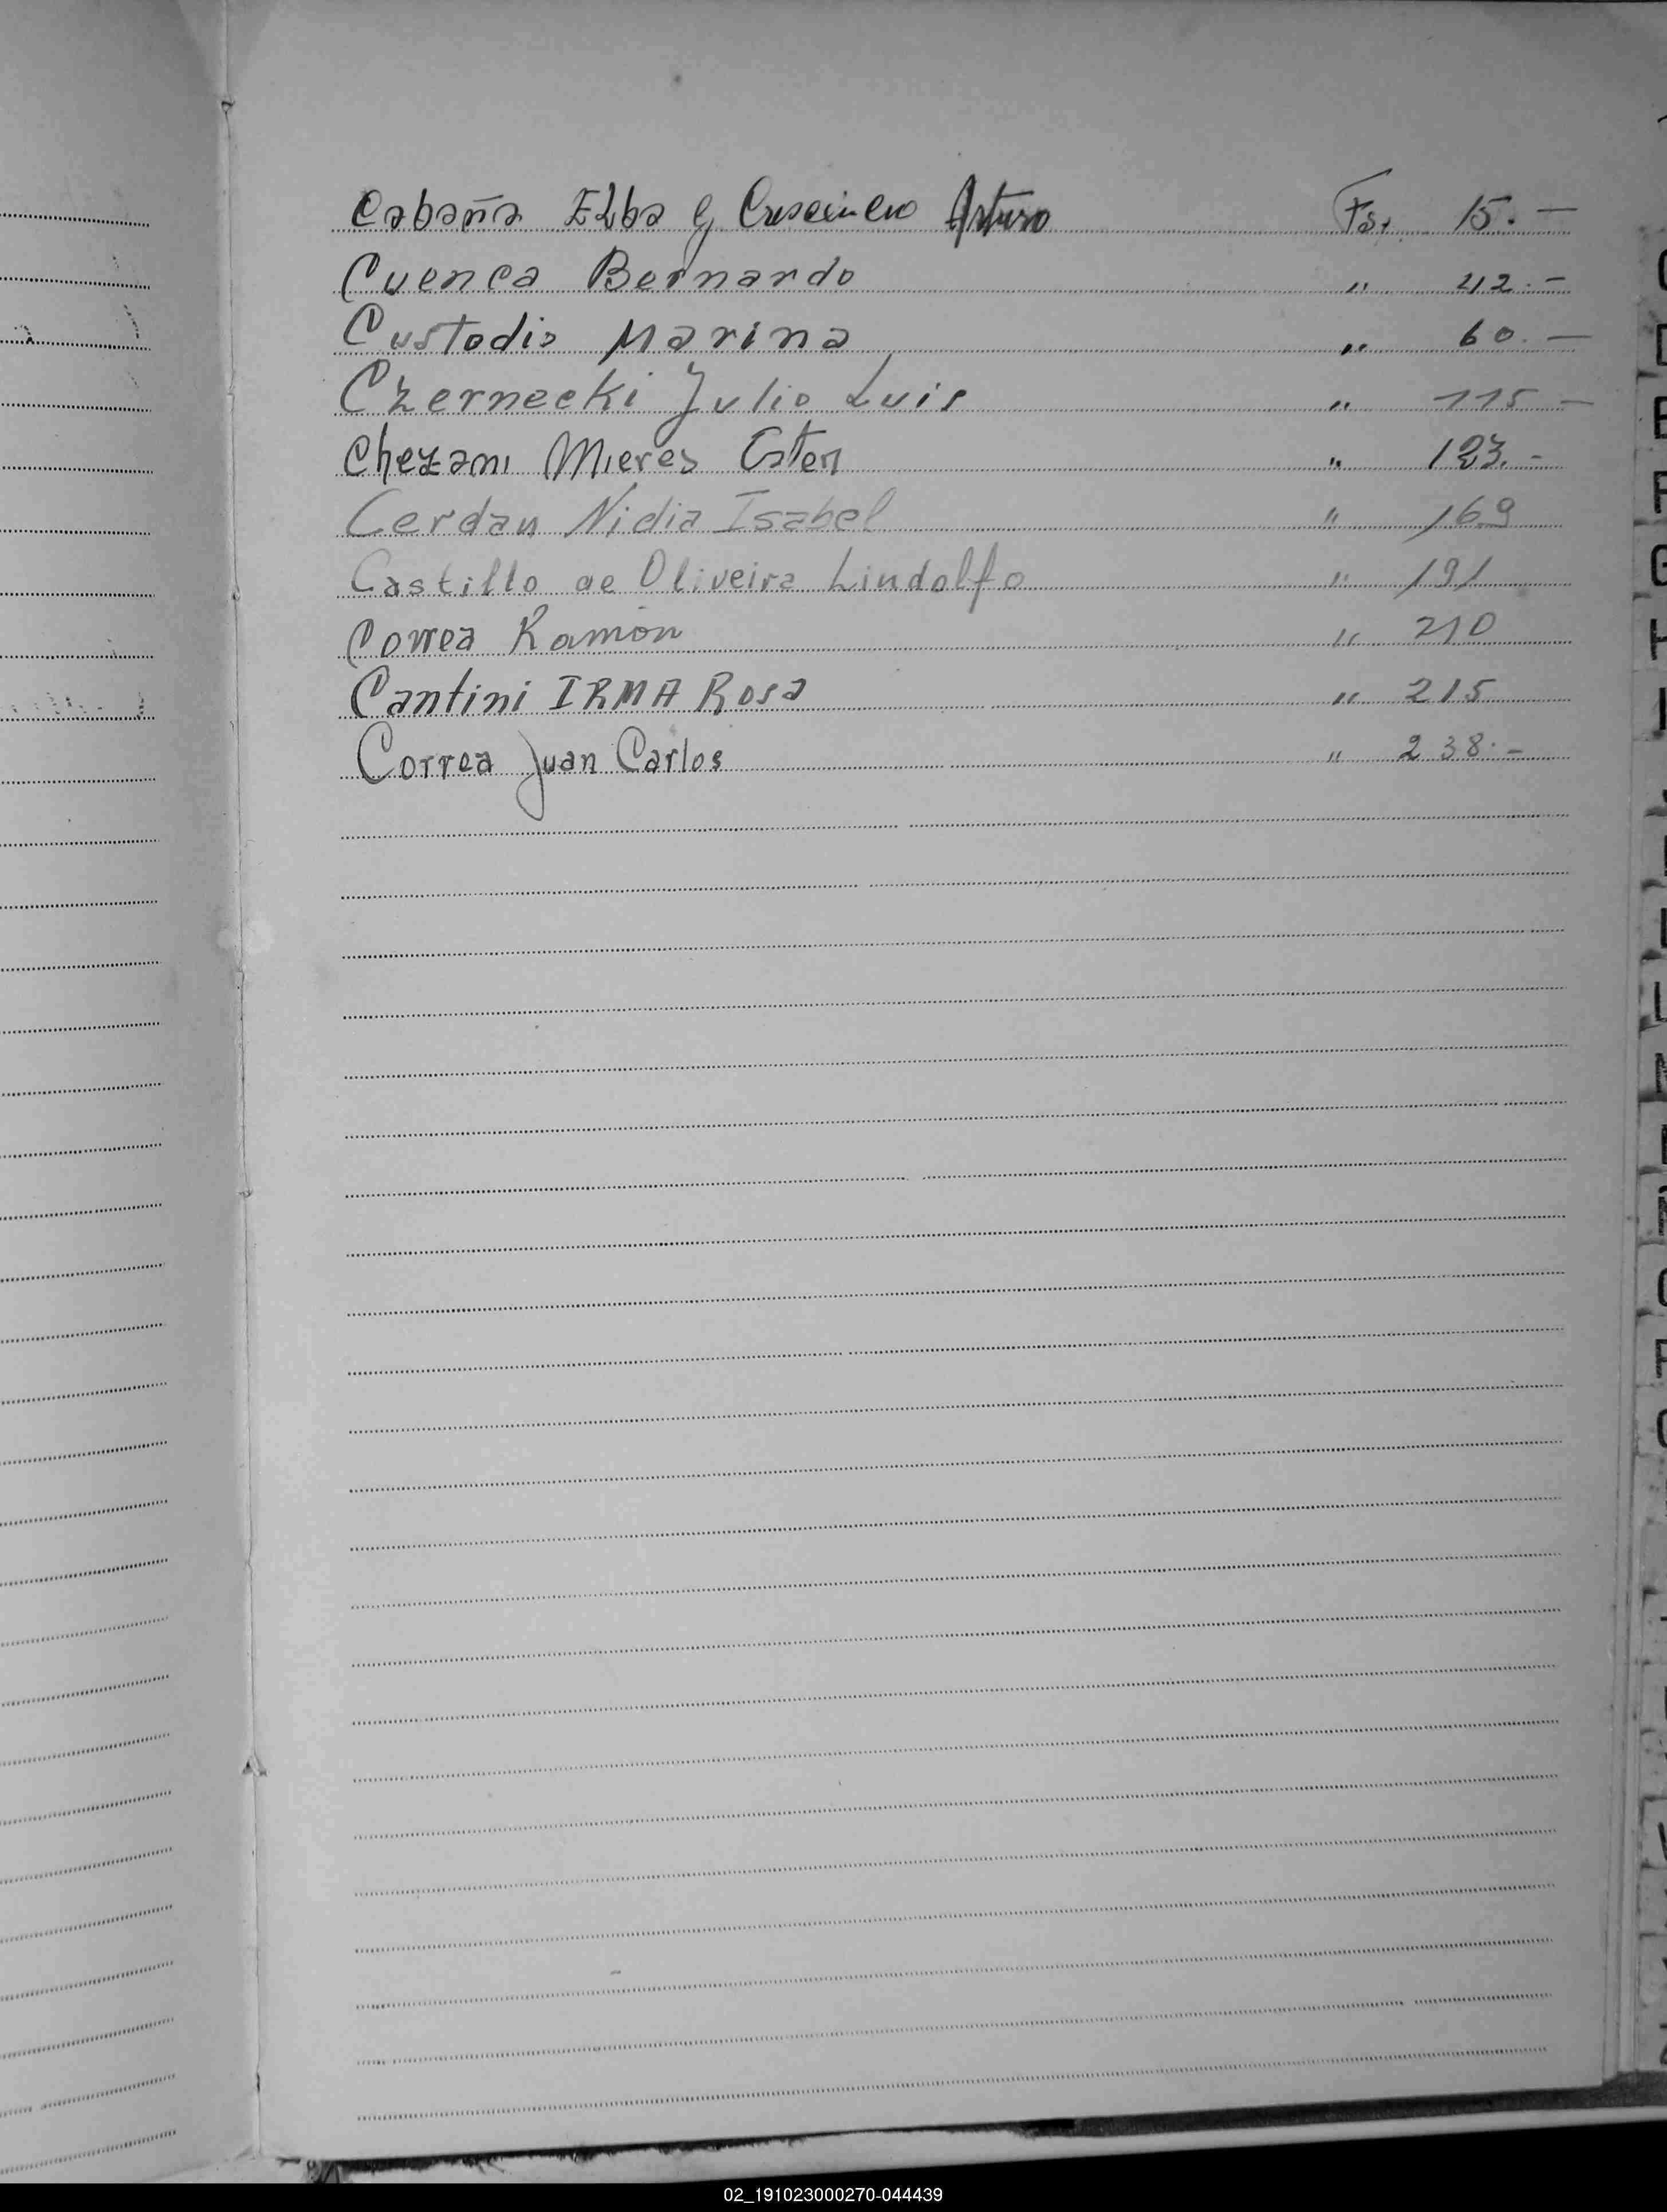 Cabaña Elba y Crescimero Arturo Fs. 15.—
Cuenca Bernardo " 42.—
Custodio Marina " 60.—
Czernecki Julio Luis " 115—
Chezani Mieres Ester " 123.-
Cerdan Nidia Isabel " 169
Castillo de Oliveira Lindolfo " 191
Correa Ramón " 210
Cantini IRMA Rosa " 215
Correa Juan Carlos " 238.-
02_191023000270-044439